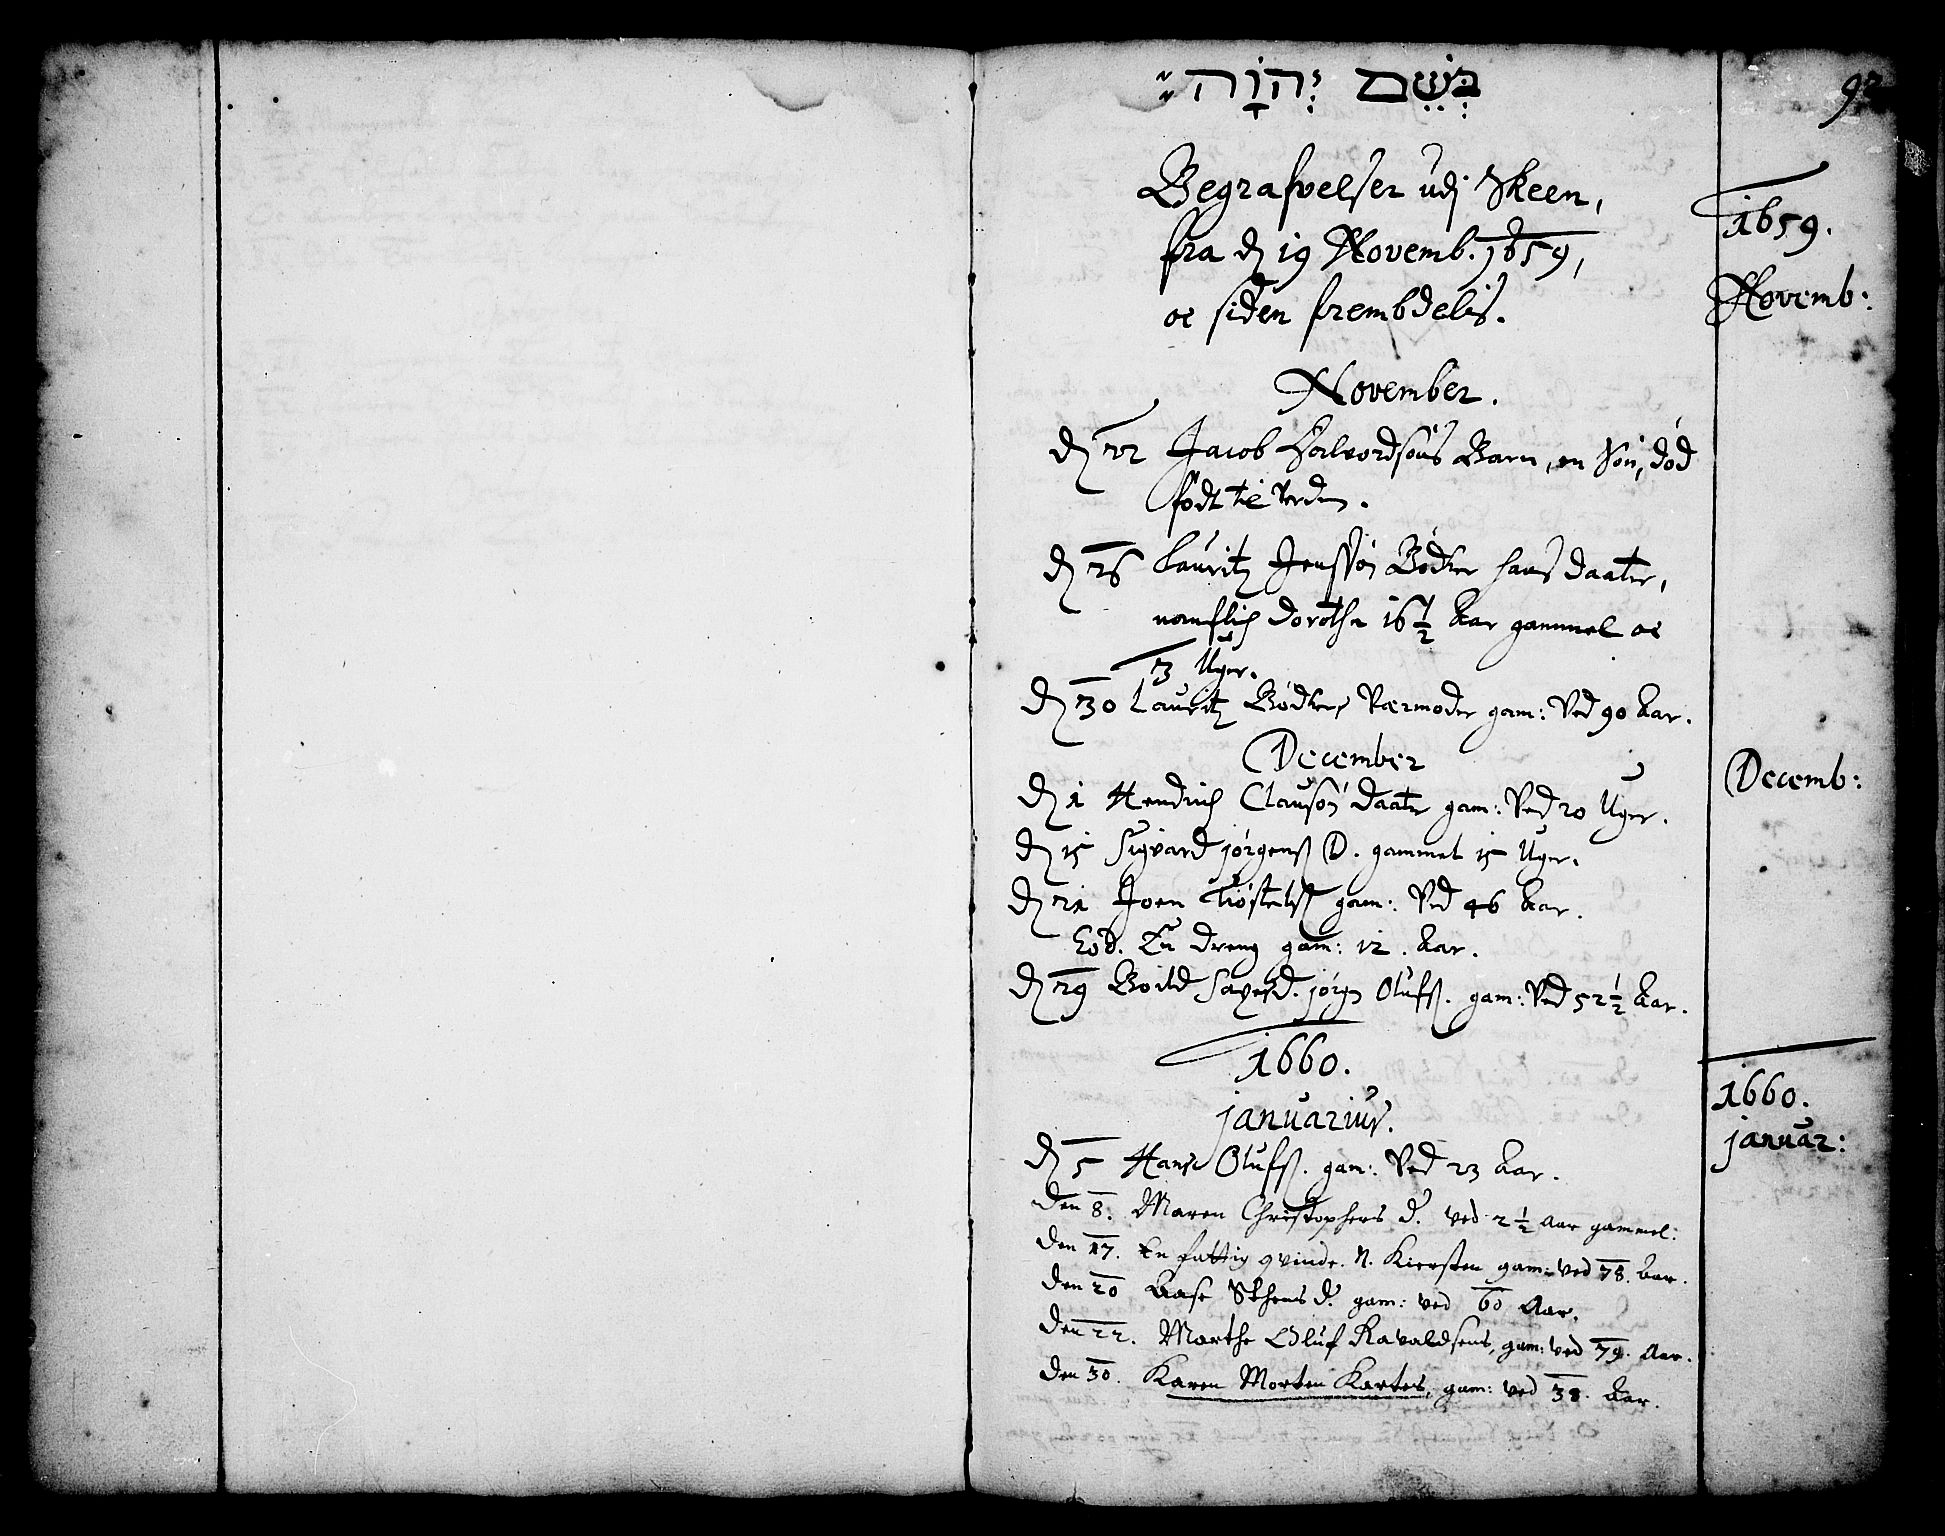 בְּשֵׁם יְהוָֹה
92
Begrafvelser udj Skeen,
fra d 19 Novemb. 1659,
oc siden frembdelis.
1659.
Novemb:
November.
d 22 Jacob Halvordsøns Barn, en Søn, død
født til Verden.
d 26 Lauritz Jenssøn Bødker hans daater,
nemblich dorothe 16 1/2 Aar gammel oc
3 Uger.
d 30 Lauritz Bødkers Værmoder gam: Ved 90 Aar.
December
Decemb:
d 1 Hendrich Clausøn daater gam: Ved 20 Uger.
d 15 Sigvard jørgens D. gammel 15 Uger.
d 21 Joen gam: Ved 46 Aar.
Eod. En dreng gam: 12. Aar.
d 29 Boild jørgen Olufs. gam: Ved 52 1/2 Aar.
1660.
1660.
januarius.
januar:
d 5 Hans Olufs. gam: Ved 23 Aar.
den 8. Maren Christophers d. ved 2 1/2 Aar gammel:
den 17. En fattig qvinde. N. Kiersten gam: ved 78. Aar.
den 20 Aase d. gam: ved 60 Aar.
den 22. Marthe Oluf Ravaldsens, gam: ved 79. Aar.
den 30. Karen Morten Kartes, gam: ved 38. Aar.